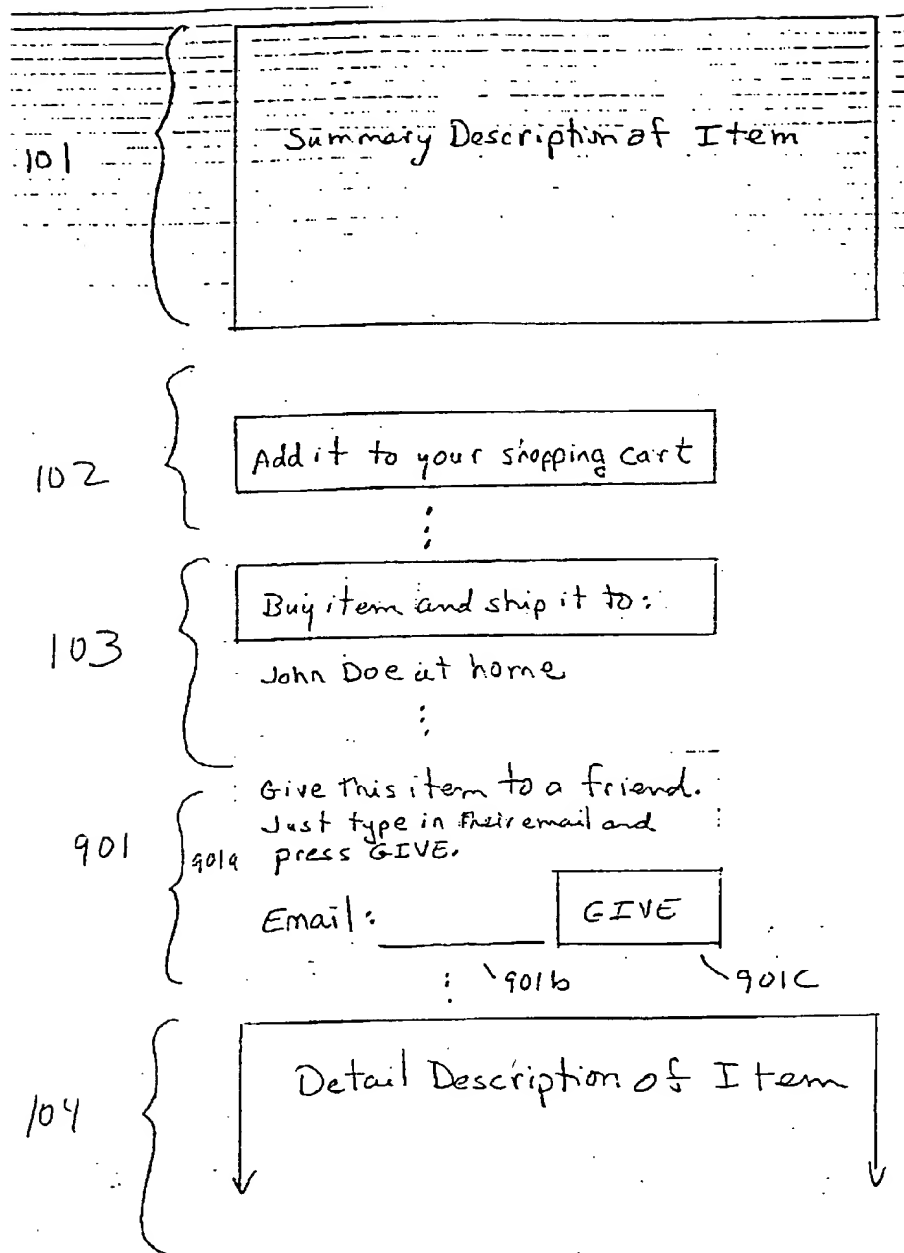 101
Summary Description of Item
102
Add it to your shopping cart
103
Buy item and ship it to:
John Doe at home
901
901a
Give this item to a friend.
Just type in their email and
press GIVE.
Email:
GIVE
901b
901C
104
Detail Description of Item